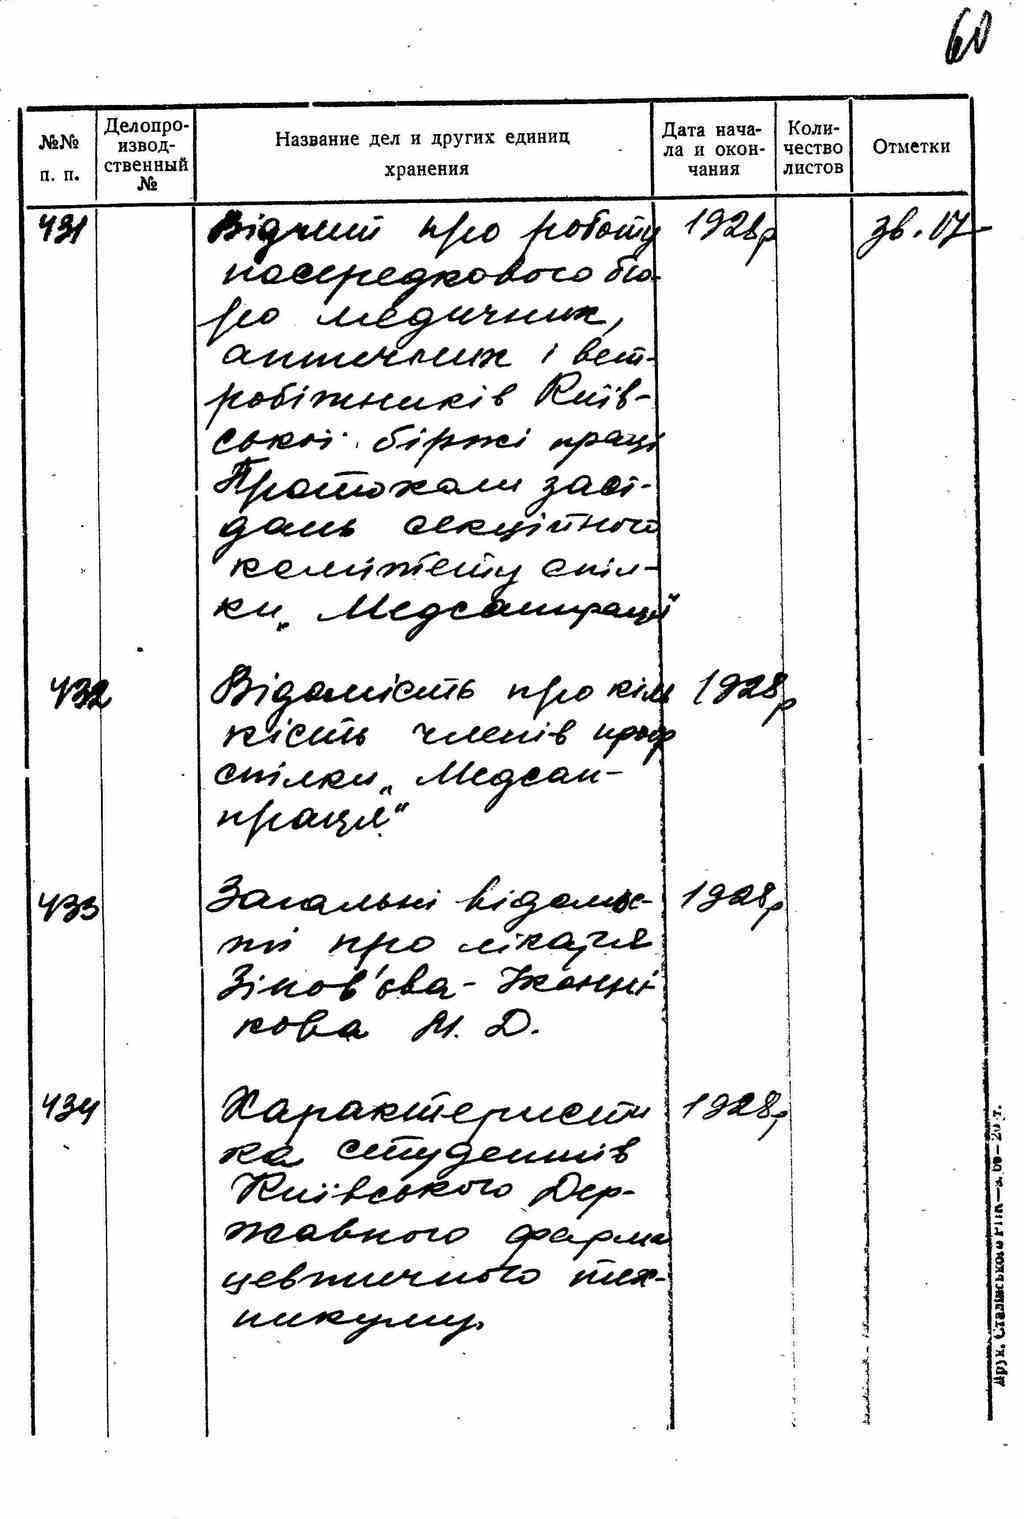 60
№№ п. п.
Делопро-
извод-
ственный
№
Название дел и других единиц
хранения
Дата нача-
ла и окон-
чания
Коли-
чество
листов
Отметки
431 Відчит про роботу 1928р
посередкового бю-
ро медичних,
аптечних і вет-
робіжників Київ-
ської біржі праці
Протоколи засі-
дань секційного
комітету спіл-
ки „Медсанпраця"
432 Відомість про кіль 1928р
кість членів проф
спілки „Медсан-
праця"
433 Загальні відомос- 1928р
ті про лікаря
Зінов'єва-Іконні
кова М. Д.
434 Характеристи 1928р
ка студентів
Київського Дер-
жавного фарма
цевтичного тех-
нікуму.